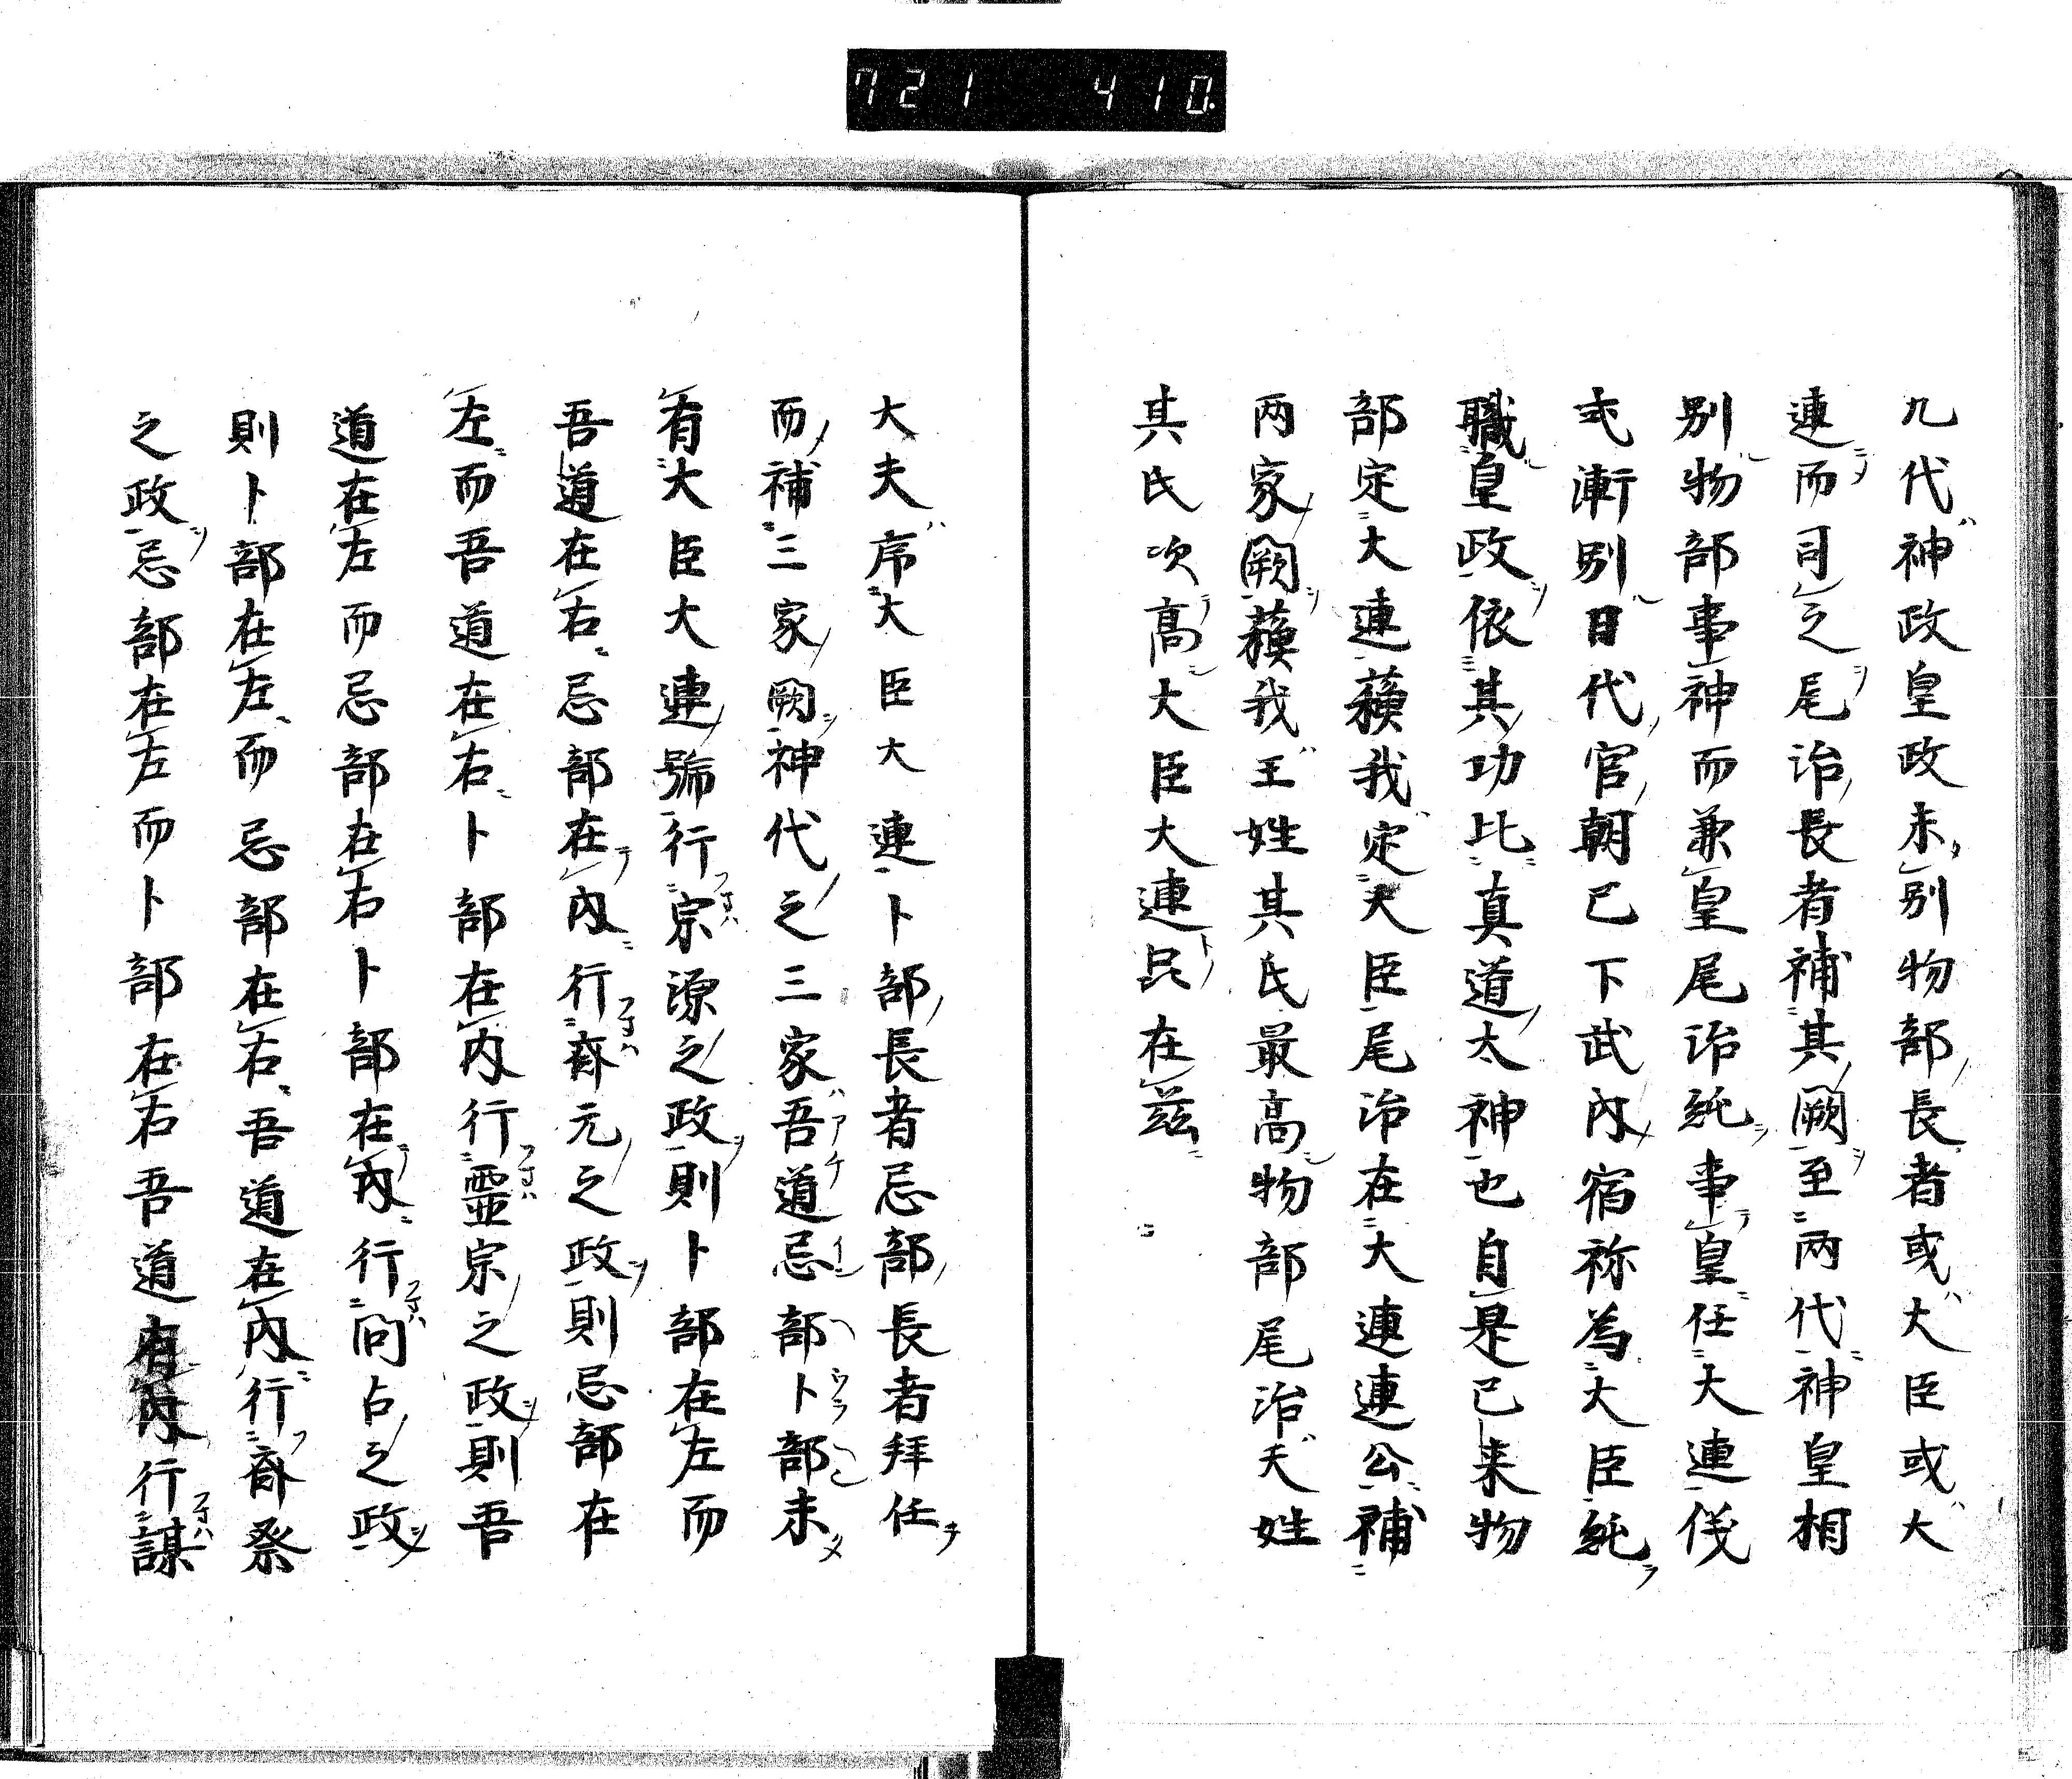 721 410.
九代神政皇政未別物部長者或大臣或大
連而司之尾治長者補其闕至兩代神皇相
別物部事神而兼皇尾治純事皇任大連伐
弐漸別日代官朝已下武内宿祢為大臣純
職皇政依其功比真道太神也自是已来物
部定大連蘓我定大臣尾治在大連連公補
两家闕蘓我王姓其氏最高物部尾治天姓
其氏次高大臣大連品在茲
大夫序大臣大連卜部長者忌部長者拜任
而補三家闕神代之三家吾道忌部卜部未
有大臣大連號行宗源之政則卜部在左而
吾道在右忌部在内行齊元之政則忌部在
左而吾道在右卜部在内行霊宗之政則吾
道在左而忌部在右卜部在内行問占之政
則卜部在左而忌部在右吾道在内行齊祭
之政忌部在左而卜部在右吾道内行謀